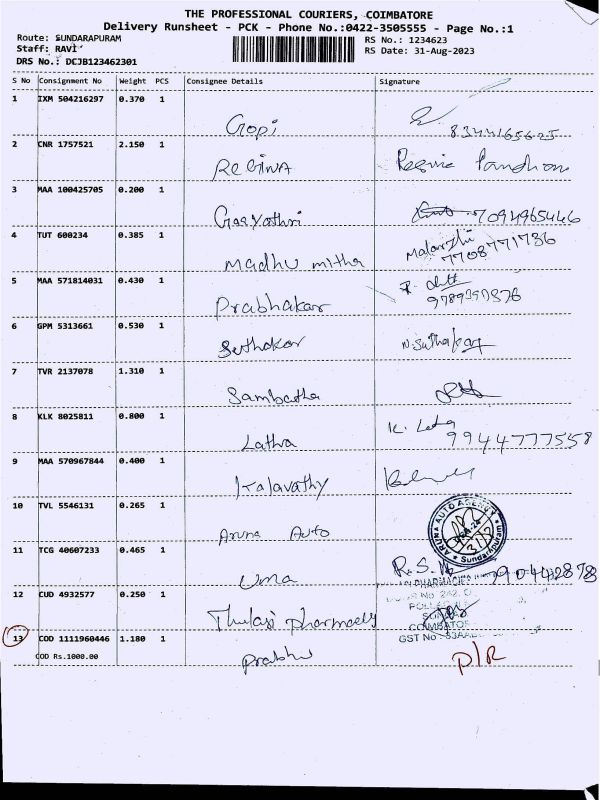 THE PROFESSIONAL COURIERS, COIMBATORE
Delivery Runsheet - PCK - Phone No.:0422-3505555 - Page No.:1
Route: SUNDARAPURAM
RS No.: 1234623
Staff: RAVI
RS Date: 31-Aug-2023
DRS No.: DCJB123462301
S No Consignment No Weight PCS Consignee Details Signature
1 IXM 504216297 0.370 1
Gopi 8344165625
2 CNR 1757521 2.150 1
REGINA Regina Pandian
3 MAA 100425705 0.200 1
Gaayathri 7094965446
4 TUT 600234 0.385 1
Madhu mitha Malarzhi 7708771736
5 MAA 571814031 0.430 1
Prabhakar
6 GPM 5313661 0.530 1
Suthakar N.Suthakar
7 TVR 2137078 1.310 1
Sambatha
8 KLK 8025811 0.800 1
Latha K. Latha
9944777558
9 MAA 570967844 0.400 1
Kalavathy
10 TVL 5546131 0.265 1
Aruna Auto ARUNA AUTO AGENCY Sundarapuram
11 TCG 40607233 0.465 1
Uma R.S. 90442878
12 CUD 4932577 0.250 1
Thulasi pharmacely PHARMACIES
No 242,
COIMBATOR
GST No
13 COD 1111960446 1.180 1
COD Rs.1000.00
Prabhu D/R